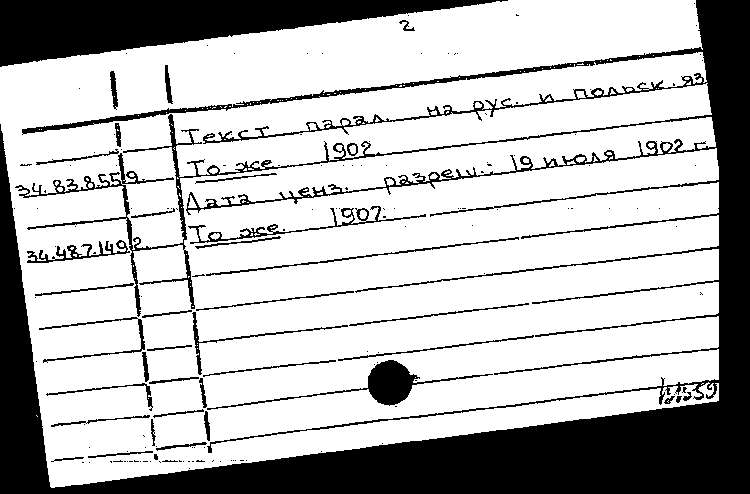 2
Текст парал. на рус. и польск. яз
34.83.8.559. То же 1902.
Дата ценз. разреш.: 19 июля 1902 г.
34.48.7.1492. То же. 1907.